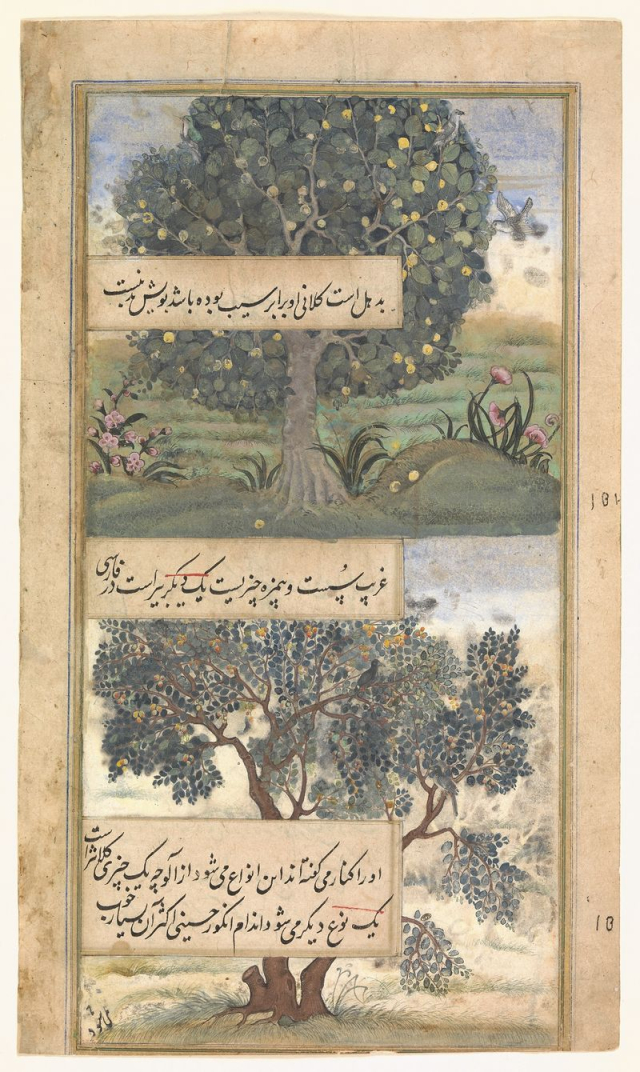 بد هل است کلانی او برابر سیب بوده باشد بویش بد نیست
غریب پُست و بیمزه چیزیست یک دیکر بیر است در فارسی
او را کنار می کفته اند این انواع می شود از آلوچه یک چیزی کلانتر است
یک نوع دیکر می شود اندام انکور حسینی اکثر آن بسیار خوب